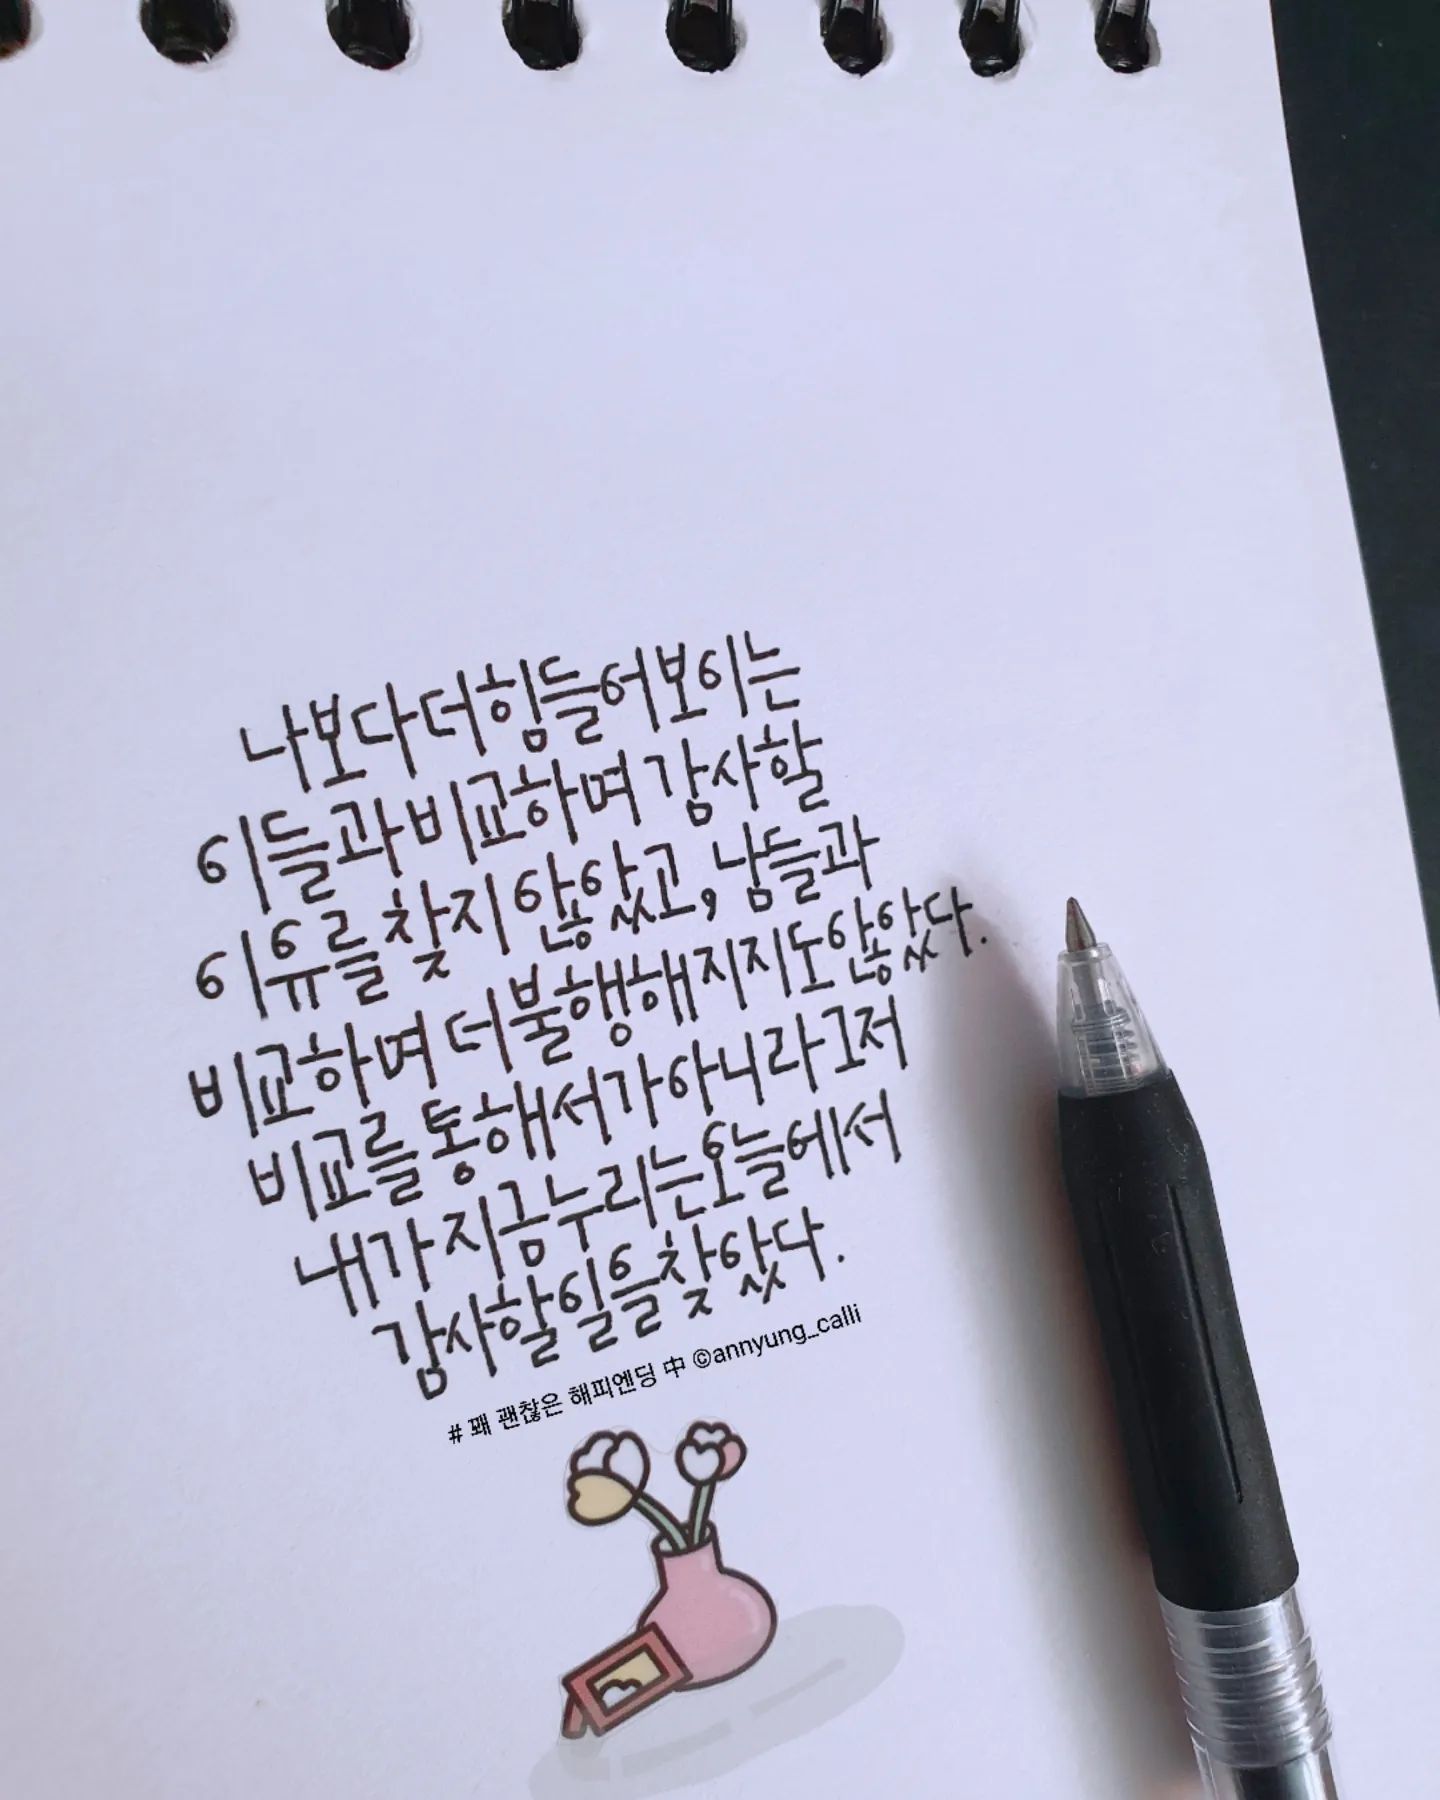 나보다 더 힘들어 보이는
이들과 비교하며 감사할
이유를 찾지 않았고, 남들과
비교하며 더 불행해지지도 않았다.
비교를 통해서가 아니라 그저
내가 지금 누리는 오늘에서
감사할 일을 찾았다.
# 꽤 괜찮은 해피엔딩 中 ©annyung_calli